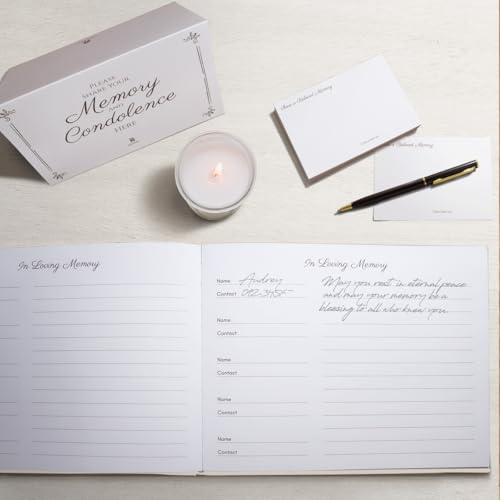 PLEASE
SHARE YOUR
Memory
AND
Condolence
HERE
Share a Beloved Memory
a Beloved Memory
In Loving Memory
In Loving Memory
Name Audrey
Contact
May you rest in eternal peace
and may your memory be a
blessing to all who knew you.
Name
Contact
Name
Contact
Name
Contact
Name
Contact